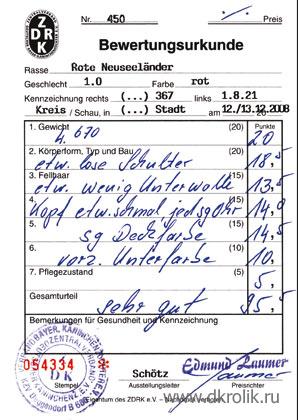 ZDRK
Nr. 450 ./. Preis
Bewertungsurkunde
Rasse Rote Neuseeländer
Geschlecht 1.0 Farbe rot
Kennzeichnung rechts (...) 367 links 1.8.21
Kreis / Schau, in (...) Stadt am 12./13.12.2008
1. Gewicht (20) Punkte
4.670 20
2. Körperform, Typ und Bau (20)
etw. lose Schulter 18,5
3. Fellhaar (15)
etw. wenig Unterwolle 13,5
4. (15)
Kopf etw. schmal, jed. sg Ohr 14,0
5. (15)
sg Deckfarbe 14,5
6. (10)
vorz. Unterfarbe 10,
7. Pflegezustand (5)
5,
Gesamturteil
sehr gut 95,5
Bemerkungen für Gesundheit und Kennzeichnung
054334
DK
Edmund Laumer
Stempel Schötz Ausstellungsleiter Preisrichter
Eigentum des ZDRK e.V.
www.dkrolik.ru